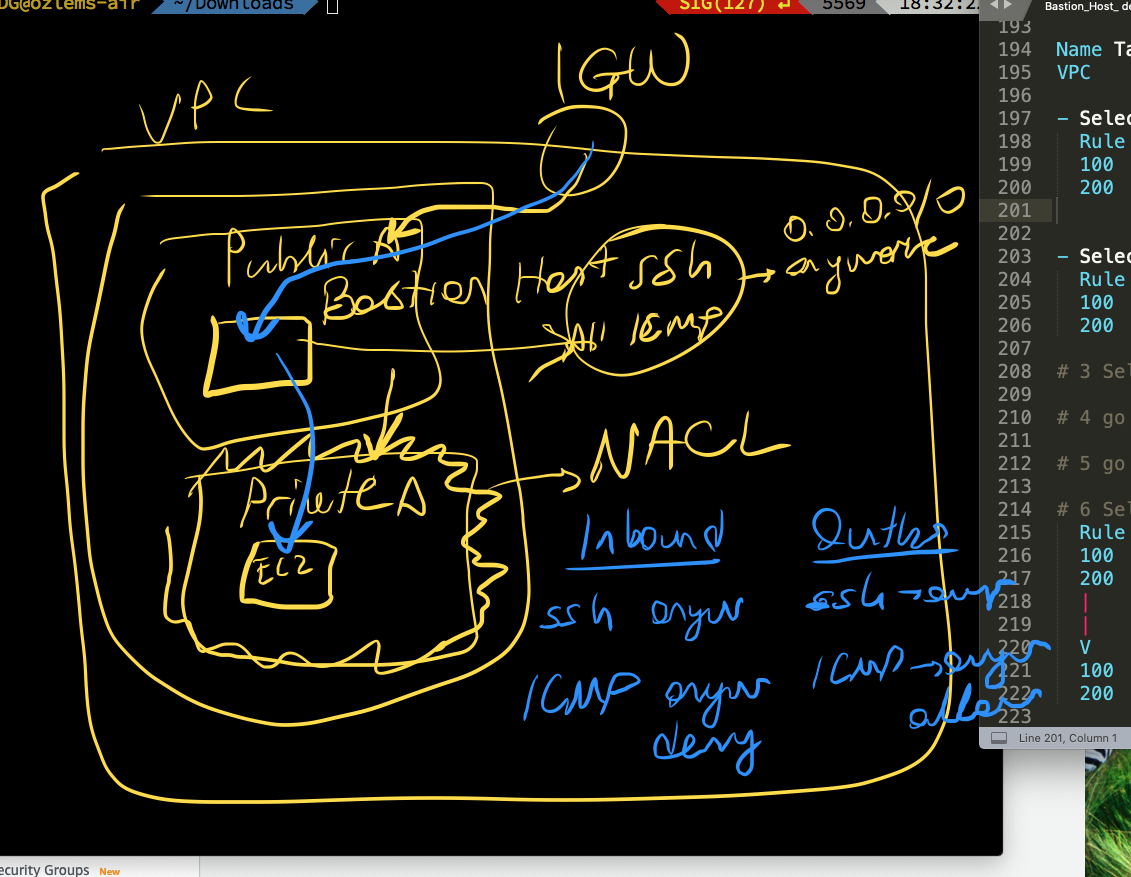 DG@ozlems-air ~/Downloads SIG(127) ↵ 5569 18:32:2
Bastion_Host_ de
IGW
VPC
Public A
Bastion Host
ssh
All ICMP
0.0.0.0/0
anywere
NACL
Private A
EC2
Inbound
ssh anyw
ICMP anyw
deny
Outbo
ssh → anyw
ICMP → anyw
allow
193
194 Name Ta
195 VPC
196
197 - Selec
198 Rule
199 100
200 200
201
202
203 - Selec
204 Rule
205 100
206 200
207
208 # 3 Sel
209
210 # 4 go
211
212 # 5 go
213
214 # 6 Sel
215 Rule
216 100
217 200
218 |
219 |
220 V
221 100
222 200
223
Line 201, Column 1
ecurity Groups New